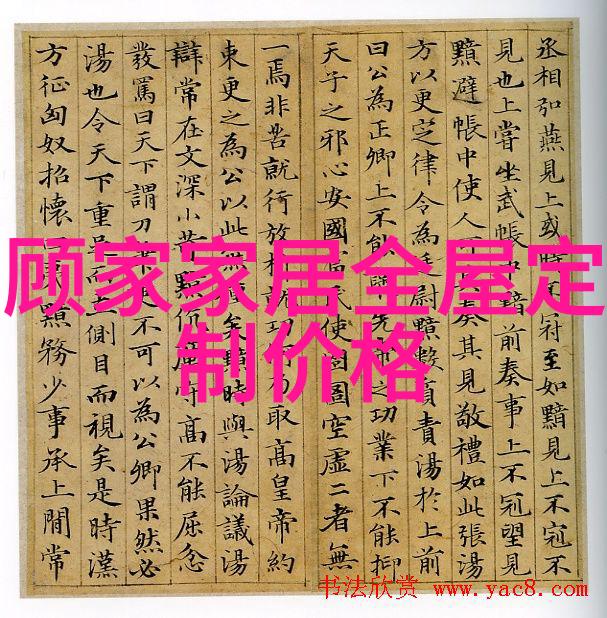 丞相弘燕見上或時不冠至如黯見上不冠不
見也上嘗坐武帳中黯前奏事上不冠望見
黯避帳中使人奏其見敬禮如此張湯
方以更定律令為廷尉黯數質責湯於上前
曰公為正卿上不能先之功業下不能抑
天子之邪心安國富使囹圄空虛二者無
一焉非苦就行放析就功乃取高皇帝約
東更之為公以此無矣黯時與湯論議湯
辯常在文深小苛黯伉厲守高不能屈忿
發罵曰天下謂刀吏不可以為公卿果然必
湯也令天下重足而立側目而視矣是時漢
方征匈奴招懷黯務少事承上間常
顾家家居全屋定
制价格
书法欣赏 www.yac8.com